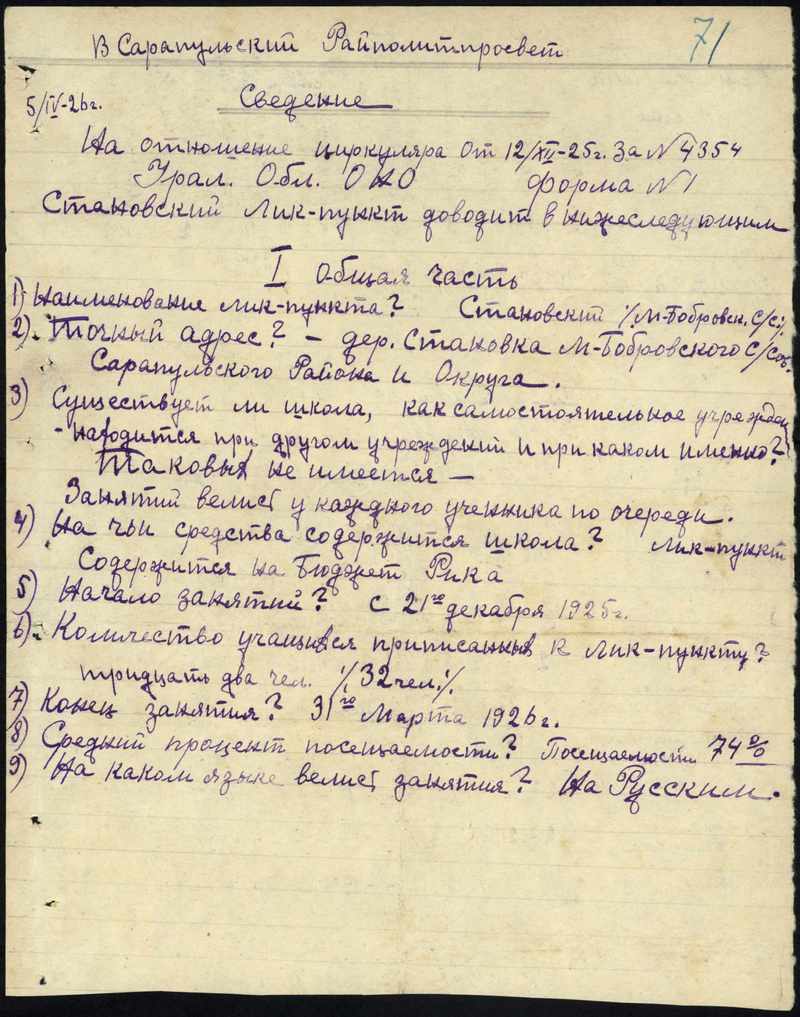 71
В Сарапульский Райполитпросвет
5/IV-26г. Сведение
На отношение циркуляра от 12/XII-25г. За №4354
Урал. Обл. ОНО форма №1
Становский лик-пункт доводит в нижеследующим
I Общая часть
1) Наименование лик-пункта? Становский ٪М-Бобровск. с/с٪
2). Точный адрес? - дер. Становка М-Бобровского с/сов.
Сарапульского Района и Округа.
3) Существует ли школа, как самостоятельное учрежден
- находится при другом учреждений и при каком именно?
Таковых не имеется —
Занятий велись у каждого ученника по очереди.
4) На чьи средства содержится школа? Лик-пункт
Содержится на Бюджет Рика
5) Начало занятий? с 21го декабря 1925г.
6). Количество учащихся приписанных к лик-пункту?
тридцать два чел. ٪32 чел.٪
7) Конец занятия? 31го Марта 1926г.
8) Средний процент посещаемости? Посещаемости 74%
9) На каком языке велись занятия? На Русским.